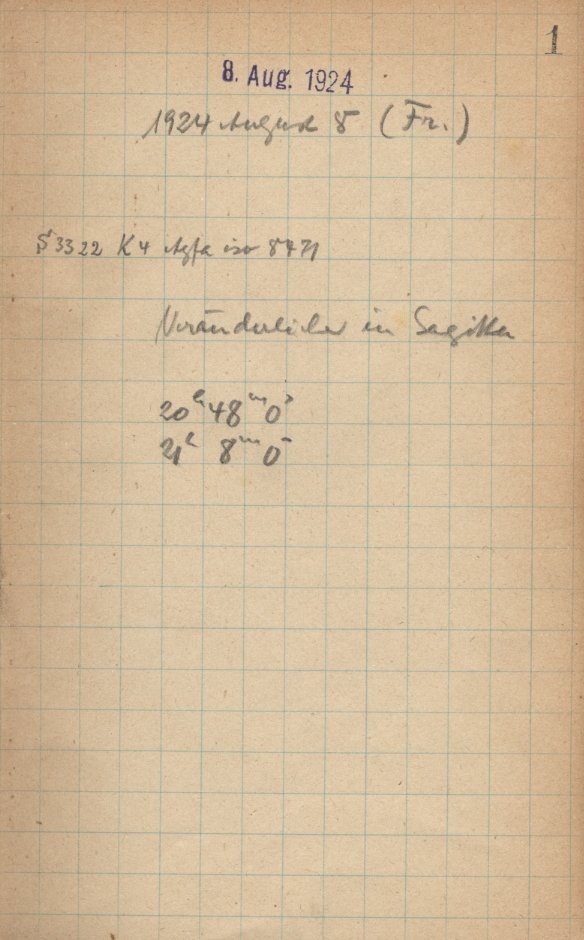 1
8. Aug. 1924
1924 August 8 (Fr.)
S 3322 K4 Agfa iso 8471
Veränderlicher in Sagitta
20h 48m 0s
21h 8m 0s